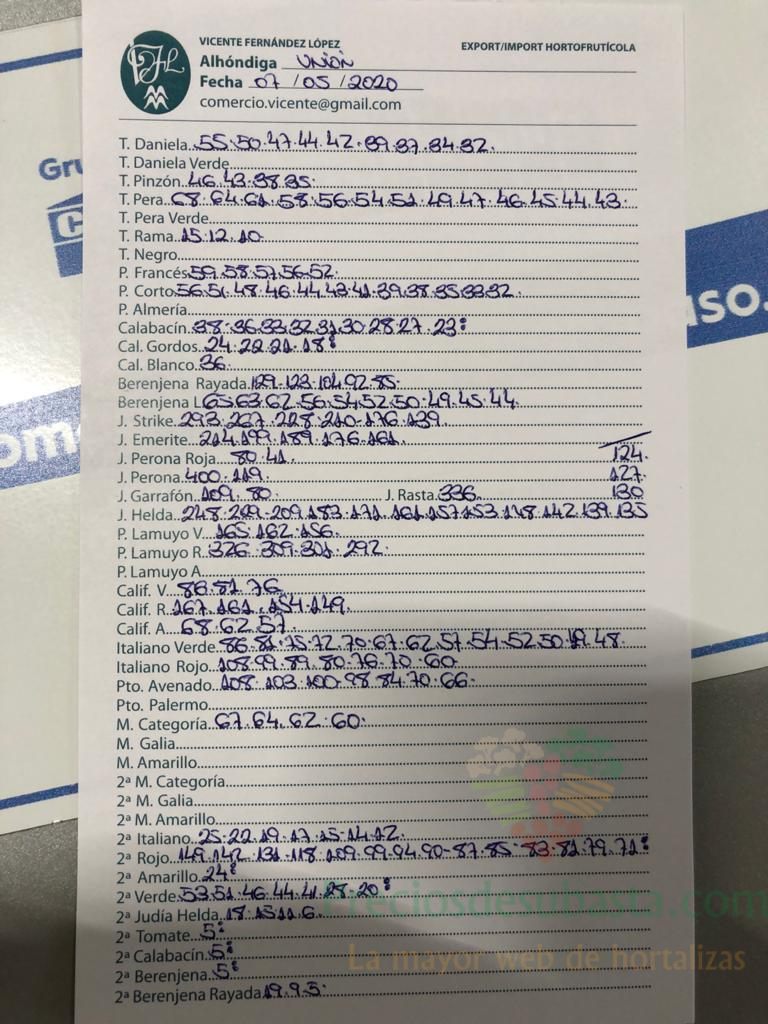 VICENTE FERNÁNDEZ LÓPEZ
EXPORT/IMPORT HORTOFRUTÍCOLA
Alhóndiga UNION
Fecha 07/05/2020
comercio.vicente@gmail.com
T. Daniela 55.50.47.44.42.39.37.34.32.
T. Daniela Verde
T. Pinzón 46.43.38.35.
T. Pera 68.64.61.58.56.54.51.49.47.46.45.44.43.
T. Pera Verde
T. Rama 15.12.10.
T. Negro
P. Francés 59.58.57.56.52.
P. Corto 56.51.48.46.44.43.41.39.38.35.33.32.
P. Almería
Calabacín 38.36.33.32.31.30.28.27.23:
Cal. Gordos 24.22.21.18:
Cal. Blanco 36.
Berenjena Rayada 129.123.104.92.85.
Berenjena L 65.63.62.56.54.52.50.49.45.44.
J. Strike 293.267.228.210-176.139.
J. Emerite 214.199.189.176.161.
J. Perona Roja 80.41. 124.
J. Perona 400.119. 127.
J. Garrafón 109.80. J. Rasta 336. 130
J. Helda 248.209.183.171.161.157.153.148.142.139.135
P. Lamuyo V. 165.162.156.
P. Lamuyo R. 326.309.301.292.
P. Lamuyo A.
Calif. V. 86.81.76.
Calif. R. 167.161.154.149.
Calif. A. 68.62.57.
Italiano Verde 86.81.75.72.70.67.62.57.54.52.50.49.48.
Italiano Rojo 108.99.89.80.76.70.60.
Pto. Avenado 108.103.100.98.84.70.66.
Pto. Palermo
M. Categoría 67.64.62.60.
M. Galia
M. Amarillo
2ª M. Categoría
2ª M. Galia
2ª M. Amarillo
2ª Italiano 25.22.19.17.15.14.12.
2ª Rojo 149.142.131.118.109.99.94.90-87.85.83.81.79.71:
2ª Amarillo 24:
2ª Verde 53.51.46.44.41.28.20:
2ª Judía Helda 18.15.11.6.
2ª Tomate 5:
2ª Calabacín 5:
2ª Berenjena 5:
2ª Berenjena Rayada 19.9.5.
Preciosdesubasta.com
La mayor web de hortalizas